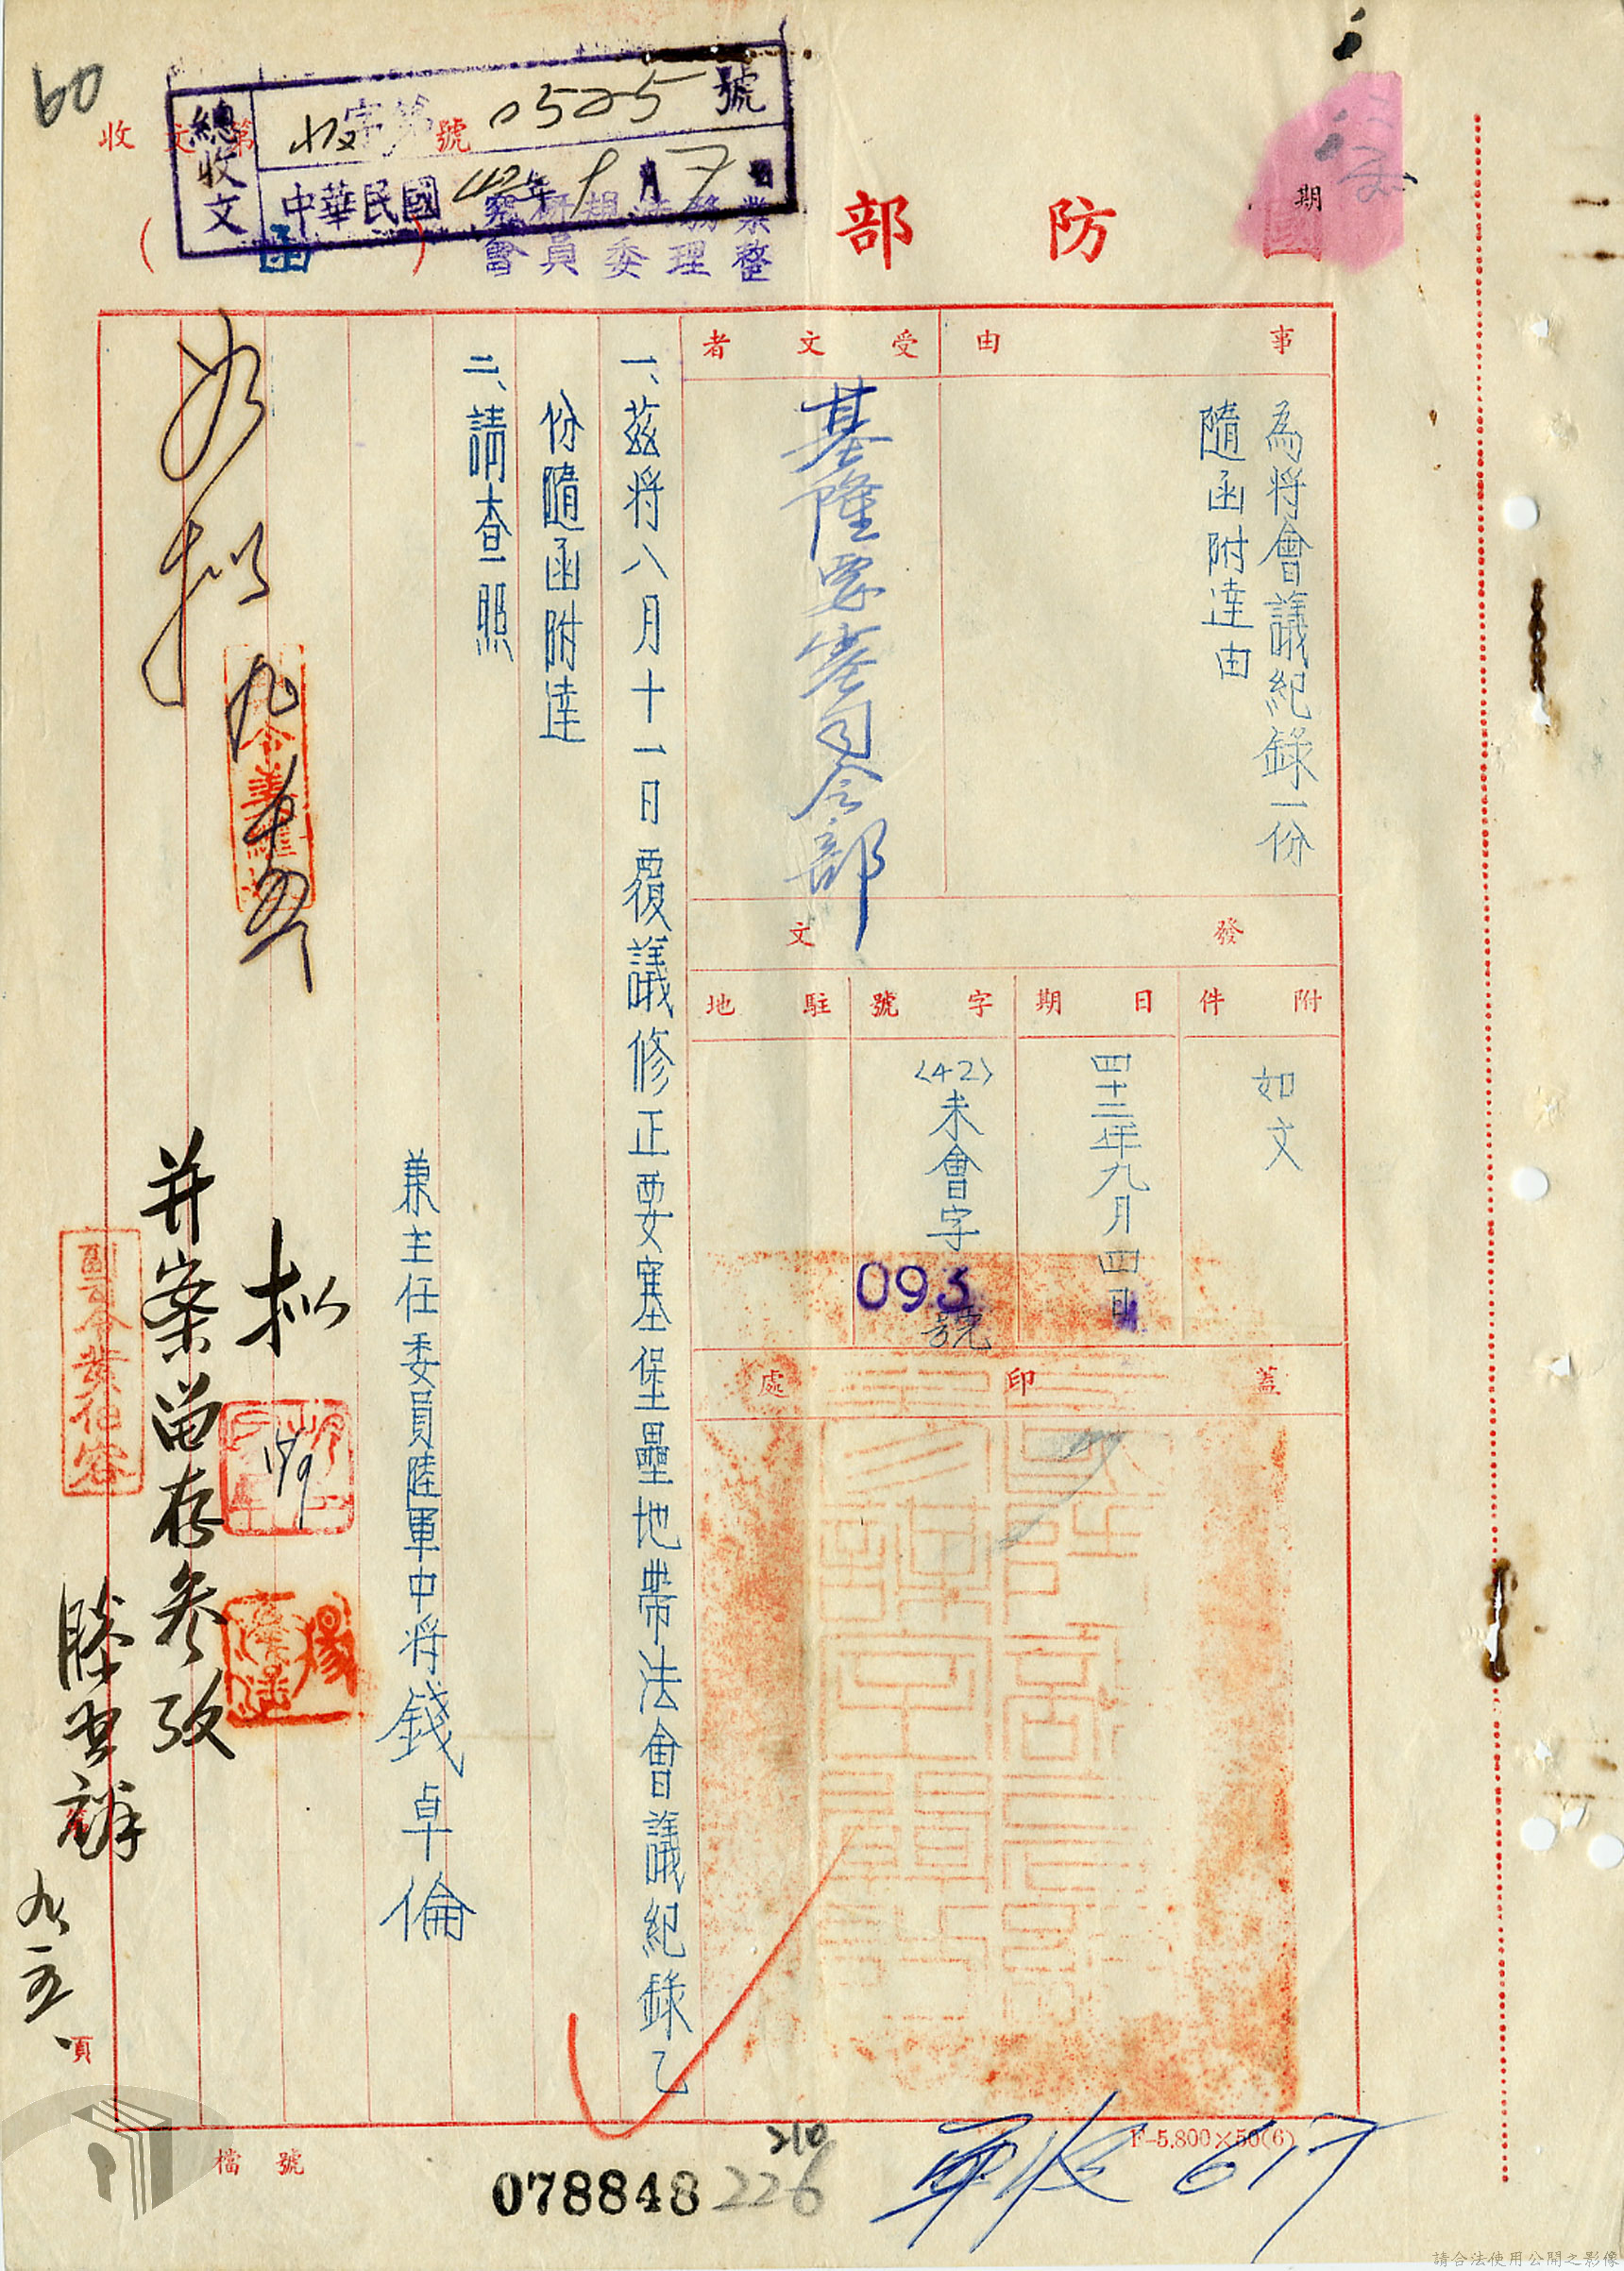 60
收文第 號
總收文
收字第0525號
中華民國42年9月7日
業務法規研究
整理委員會
國防部
(函)
期
事由
為將會議紀錄一份
隨函附達由
受文者
基隆要塞司令部
發文
附件
如文
日期
四十二年九月四日
字號
(42)未會字
093
號
駐地
蓋印處
一、茲將八月十一日覆議修正要塞堡壘地帶法會議紀錄乙
份隨函附達
二、請查照
兼主任委員陸軍中將錢卓倫
如擬
擬
并案留存參攷
滕雲龍
九、五、
頁
檔號
078848
210
226
軍收 617
F-5,800×50(6)
請合法使用公開之影像